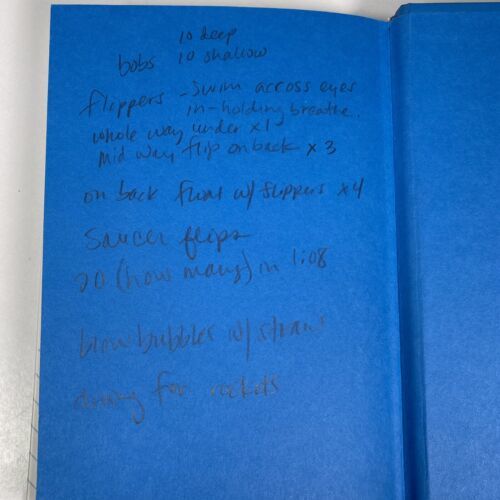 10 deep
bobs 10 shallow
flippers - swim across eyes
in - holding breathe.
whole way under x1
mid way flip on back x 3
on back float w/ flippers x4
Saucer flips
20 (how many) in 1:08
blow bubbles w/ straw
diving for rockets